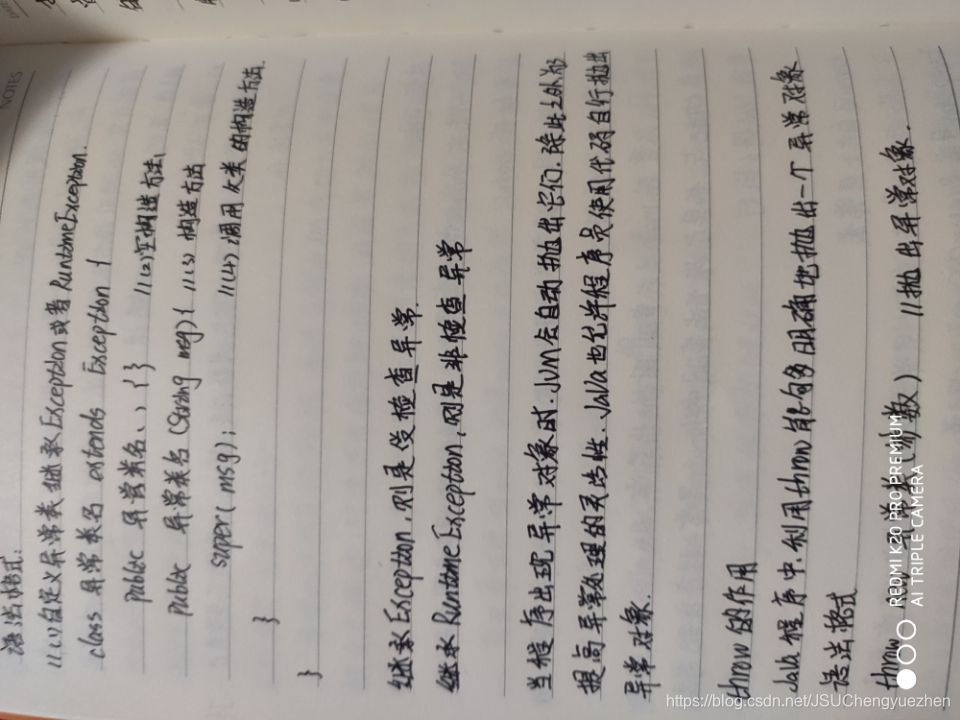 NOTES
语法格式:
//(1)自定义异常类继承Exception或者RuntimeException.
class 异常类名 extends Exception {
public 异常类名()、{ } //(2)空构造方法
public 异常类名(String msg){ //(3)构造方法
super(msg); //(4)调用父类的构造方法.
}
}
继承Exception,则是受检查异常.
继承RuntimeException,则是非检查异常
当程序出现异常对象时.JVM会自动抛出它们.除此之外为
提高异常处理的灵活性.Java也允许程序员使用代码自行抛出
异常对象.
throw 的作用
Java程序中.利用throw语句明确地抛出一个异常对象
语法格式
throw 数) //抛出异常对象.
REDMI K20 PRO PREMIUM
AI TRIPLE CAMERA
https://blog.csdn.net/JSUChengyuezhen